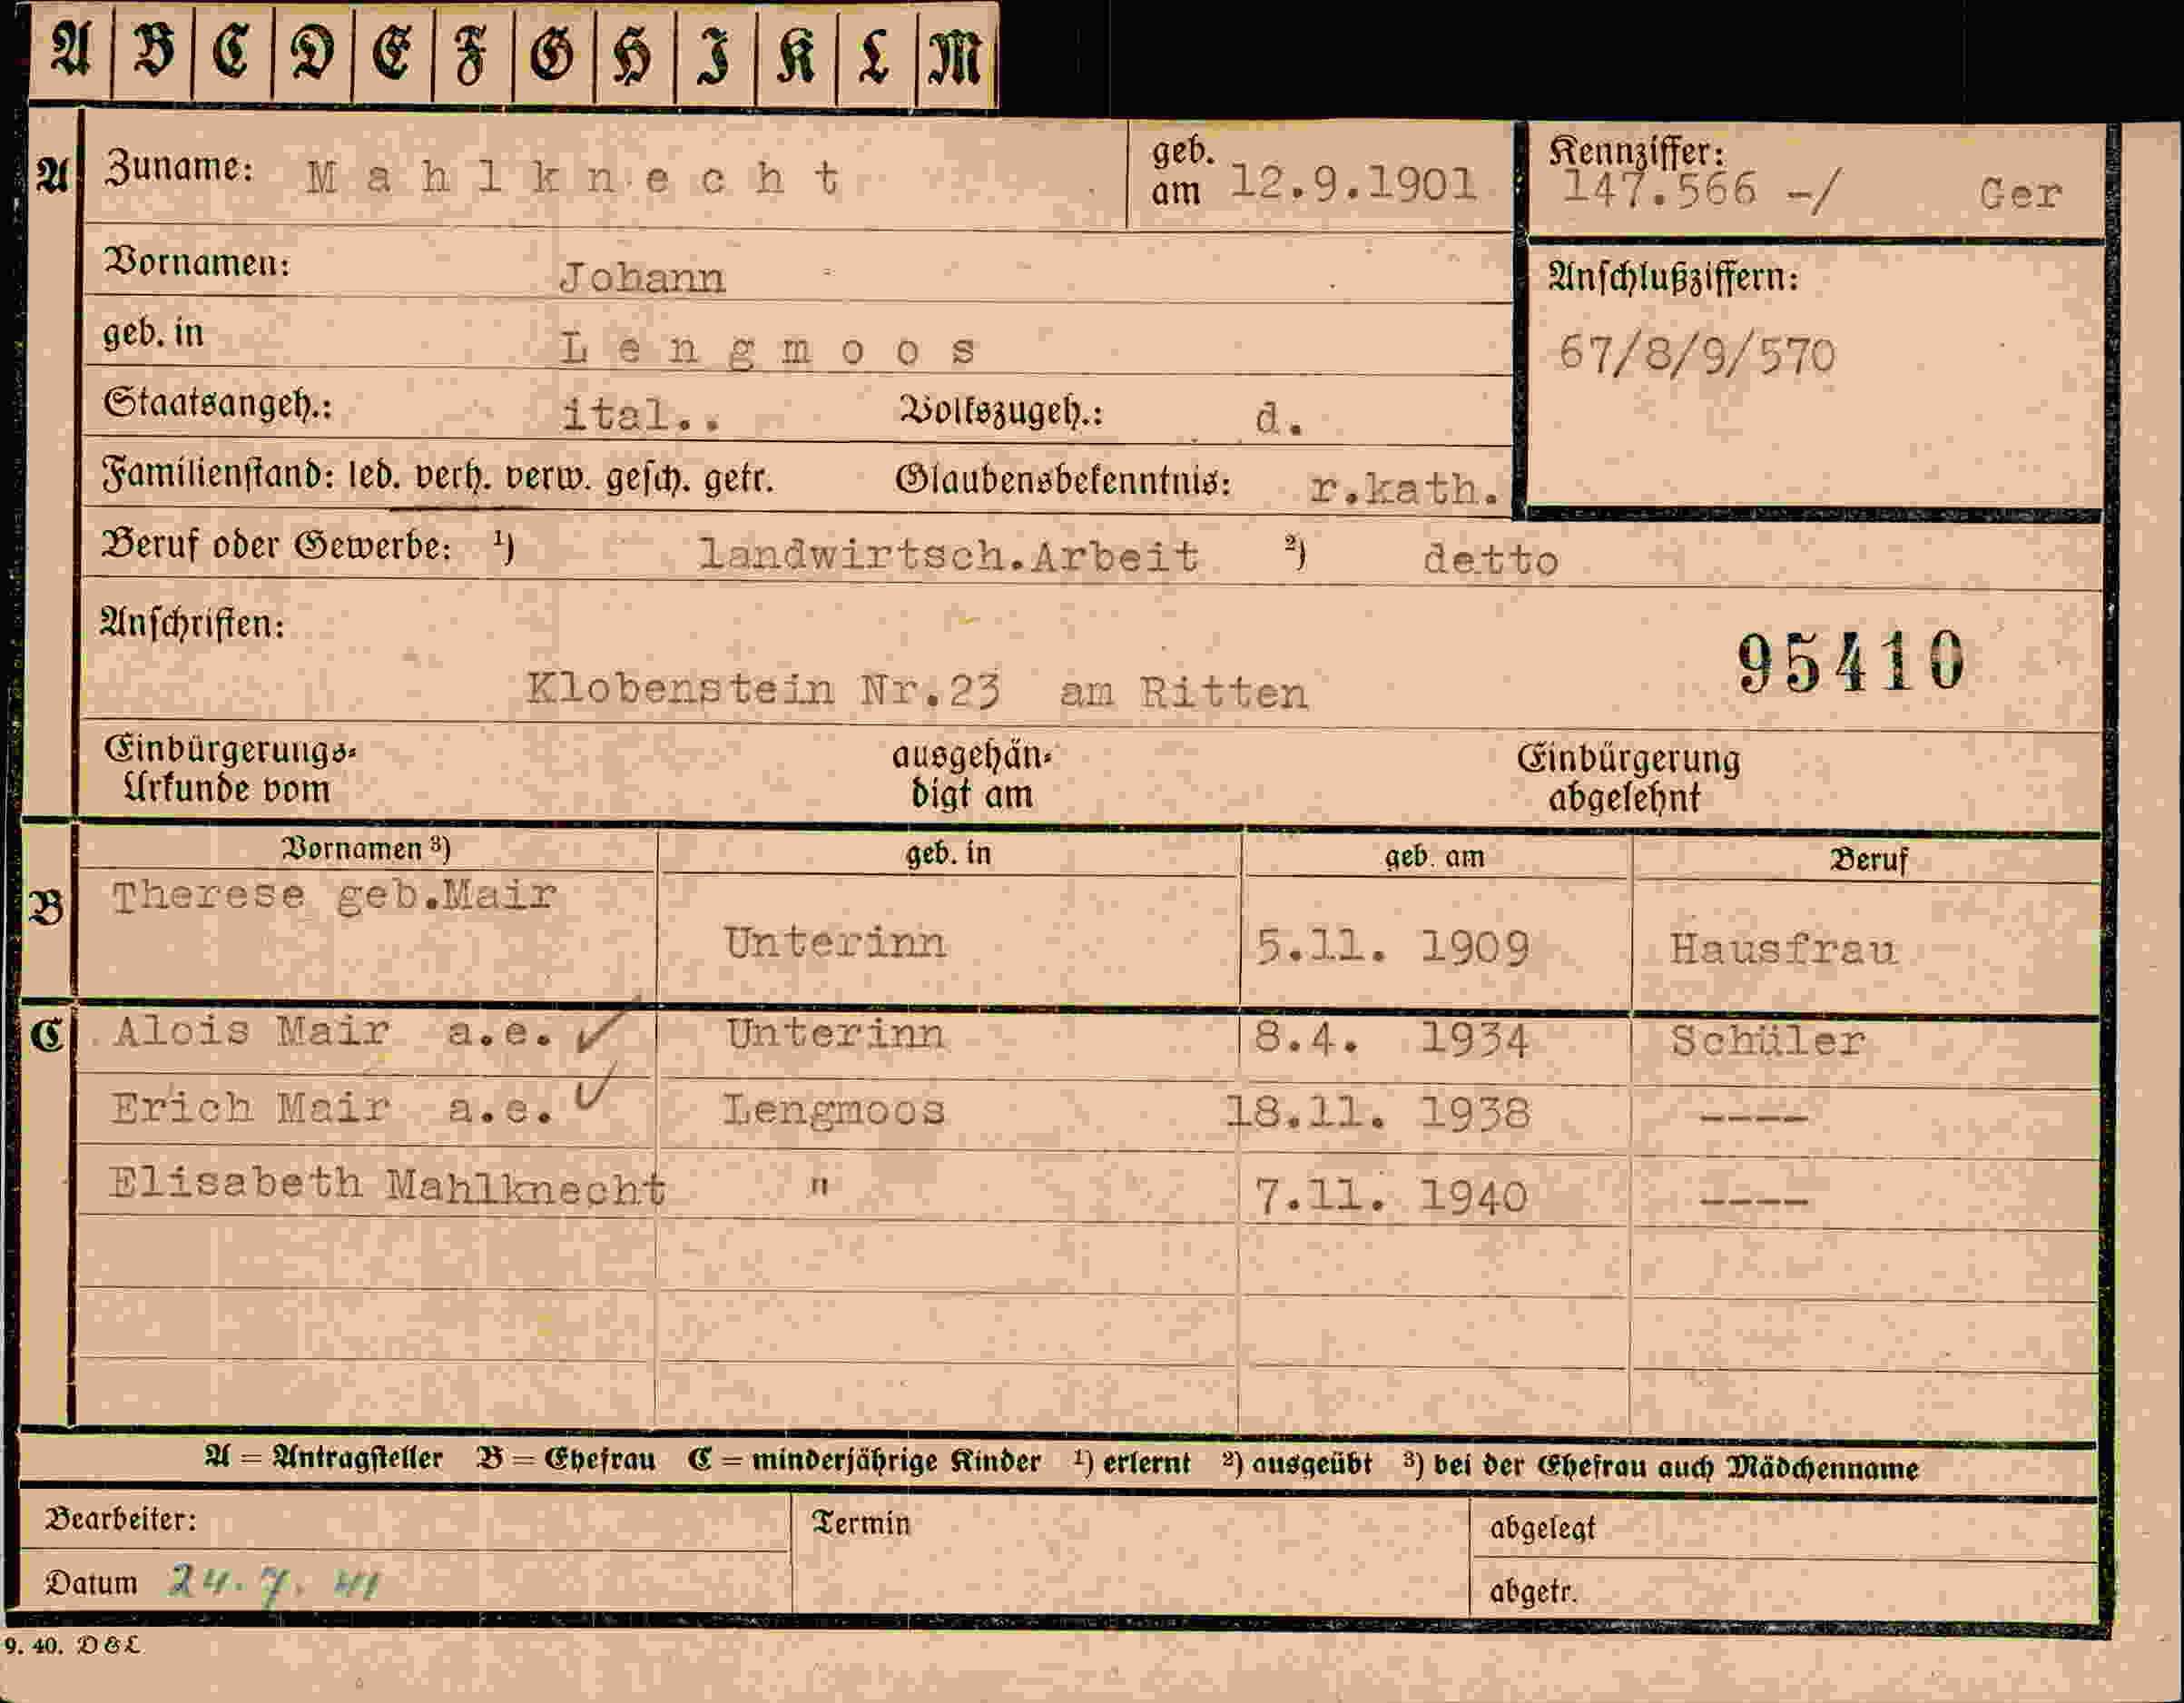 A B C D E F G H I K L M
A Zuname: Mahlknecht geb. am 12.9.1901 Kennziffer: 147.566 -/ Ger
Vornamen: Johann Anschlußziffern:
geb. in Lengmoos 67/8/9/570
Staatsangeh.: ital.. Volkszugeh.: d.
Familienstand: led. verh. verw. gesch. getr. Glaubensbekenntnis: r.kath.
Beruf oder Gewerbe: ¹) landwirtsch.Arbeit ²) detto
Anschriften:
95410
Klobenstein Nr.23 am Ritten
Einbürgerungs- ausgehän- Einbürgerung
Urkunde vom digt am abgelehnt
Vornamen ³) geb. in geb. am Beruf
B Therese geb.Mair
Unterinn 5.11. 1909 Hausfrau
C Alois Mair a.e. ✓ Unterinn 8.4. 1934 Schüler
Erich Mair a.e. ✓ Lengmoos 18.11. 1938 ----
Elisabeth Mahlknecht " 7.11. 1940 ----
A = Antragsteller B = Ehefrau C = minderjährige Kinder ¹) erlernt ²) ausgeübt ³) bei der Ehefrau auch Mädchenname
Bearbeiter: Termin abgelegt
Datum 24.7.41 abgetr.
9. 40. D&L